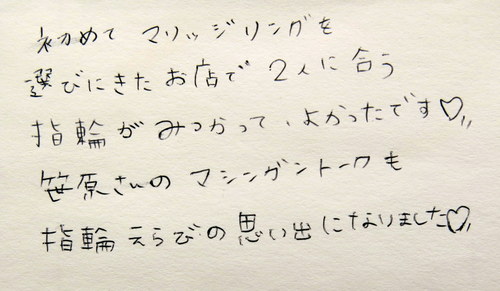 初めて マリッジリングを
選びにきた お店で 2人に合う
指輪が みつかって、よかったです♡
笹原さんの マシンガントークも
指輪えらびの思い出になりました♡